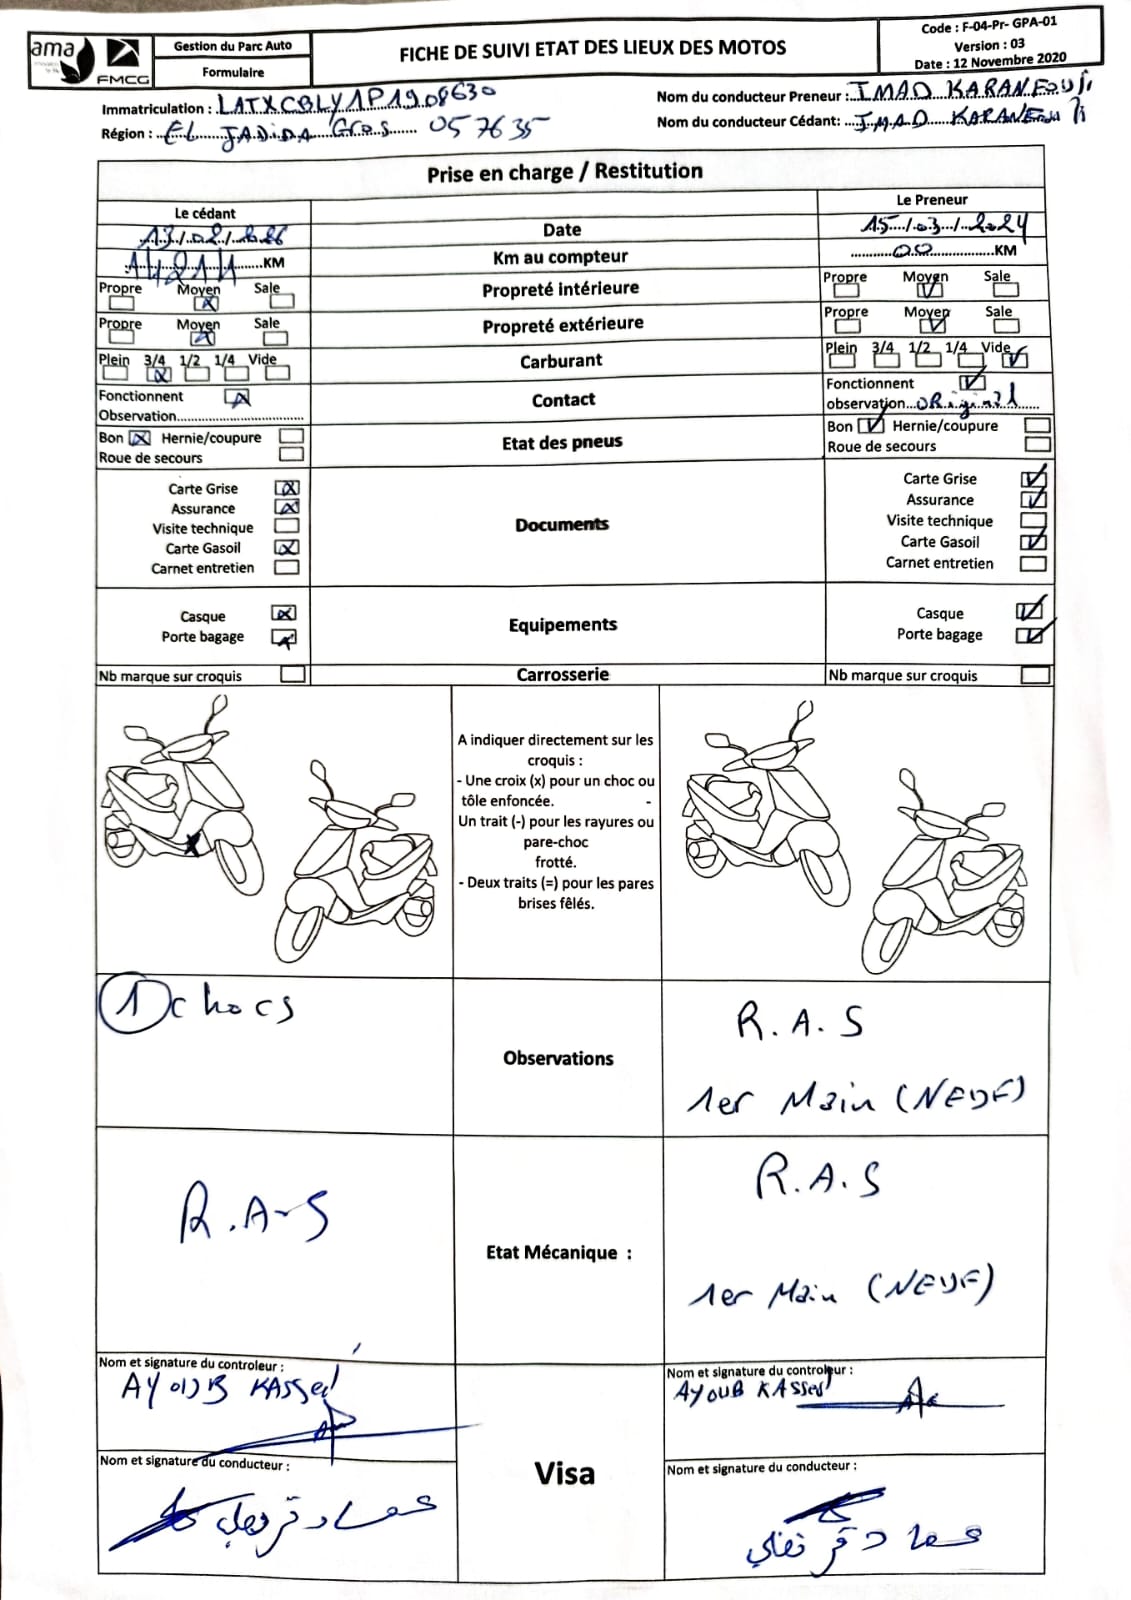 ama
FMCG
Gestion du Parc Auto
Formulaire
FICHE DE SUIVI ETAT DES LIEUX DES MOTOS
Code : F-04-Pr- GPA-01
Version : 03
Date : 12 Novembre 2020
Immatriculation : LATXCBLY1P1908630
Nom du conducteur Preneur : IMAD KARANEFOUJI
Région : EL JADIDA Gros 057635
Nom du conducteur Cédant: IMAD
Prise en charge / Restitution
Le cédant
Le Preneur
Date
15/03/2024
KM
Km au compteur
00 KM
Propre Moyen Sale
Propreté intérieure
Propre Moyen Sale
Propre Moyen Sale
Propreté extérieure
Propre Moyen Sale
Plein 3/4 1/2 1/4 Vide
Carburant
Plein 3/4 1/2 1/4 Vide
Fonctionnent
Observation
Contact
Fonctionnent
observation ORiginal
Bon Hernie/coupure
Roue de secours
Etat des pneus
Bon Hernie/coupure
Roue de secours
Carte Grise
Assurance
Visite technique
Carte Gasoil
Carnet entretien
Documents
Carte Grise
Assurance
Visite technique
Carte Gasoil
Carnet entretien
Casque
Porte bagage
Equipements
Casque
Porte bagage
Nb marque sur croquis
Carrosserie
Nb marque sur croquis
A indiquer directement sur les
croquis :
- Une croix (x) pour un choc ou
tôle enfoncée. -
Un trait (-) pour les rayures ou
pare-choc
frotté.
- Deux traits (=) pour les pares
brises fêlés.
1 chocs
Observations
R.A.S
1er Main (NEUF)
R.A.S
Etat Mécanique :
R.A.S
1er Main (NEUF)
Nom et signature du controleur :
AYOUB KASSed
Visa
Nom et signature du controleur :
AYOUB KASSed
Nom et signature du conducteur :
عماد
Nom et signature du conducteur :
عماد